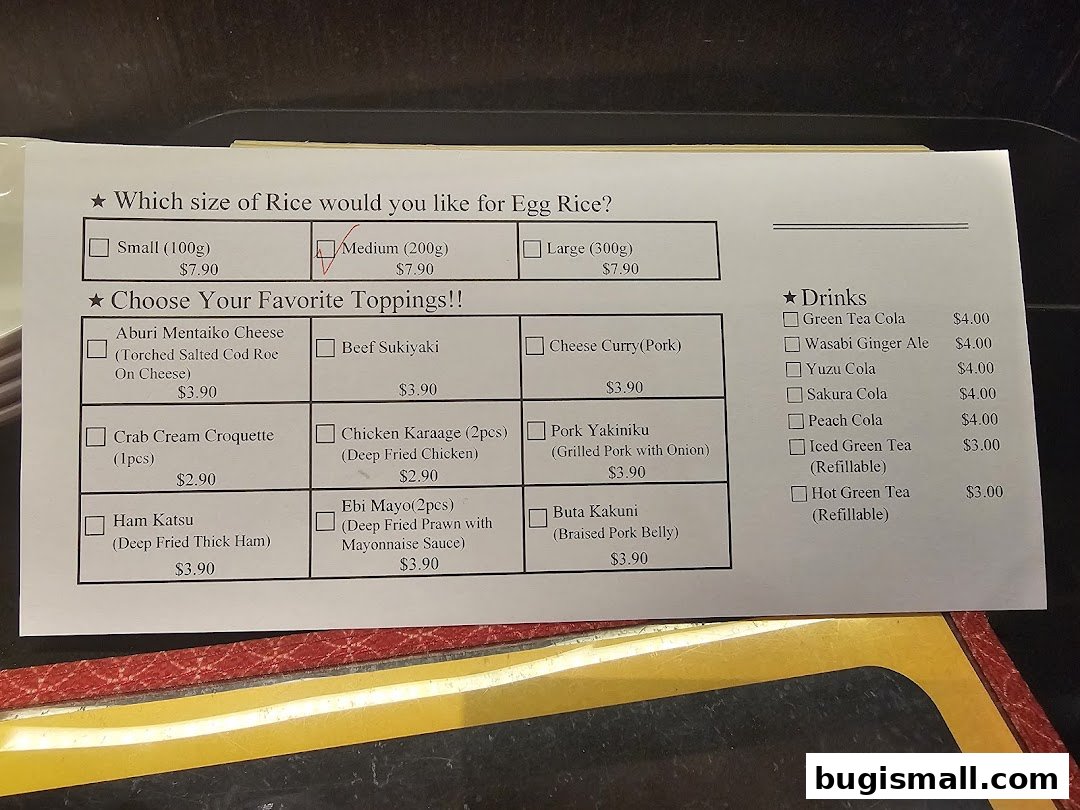 ★ Which size of Rice would you like for Egg Rice?
Small (100g)
$7.90
Medium (200g)
$7.90
Large (300g)
$7.90
★ Choose Your Favorite Toppings!!
Aburi Mentaiko Cheese
(Torched Salted Cod Roe
On Cheese)
$3.90
Beef Sukiyaki
$3.90
Cheese Curry(Pork)
$3.90
Crab Cream Croquette
(1pcs)
$2.90
Chicken Karaage (2pcs)
(Deep Fried Chicken)
$2.90
Pork Yakiniku
(Grilled Pork with Onion)
$3.90
Ham Katsu
(Deep Fried Thick Ham)
$3.90
Ebi Mayo(2pcs)
(Deep Fried Prawn with
Mayonnaise Sauce)
$3.90
Buta Kakuni
(Braised Pork Belly)
$3.90
★ Drinks
Green Tea Cola $4.00
Wasabi Ginger Ale $4.00
Yuzu Cola $4.00
Sakura Cola $4.00
Peach Cola $4.00
Iced Green Tea $3.00
(Refillable)
Hot Green Tea $3.00
(Refillable)
bugismall.com